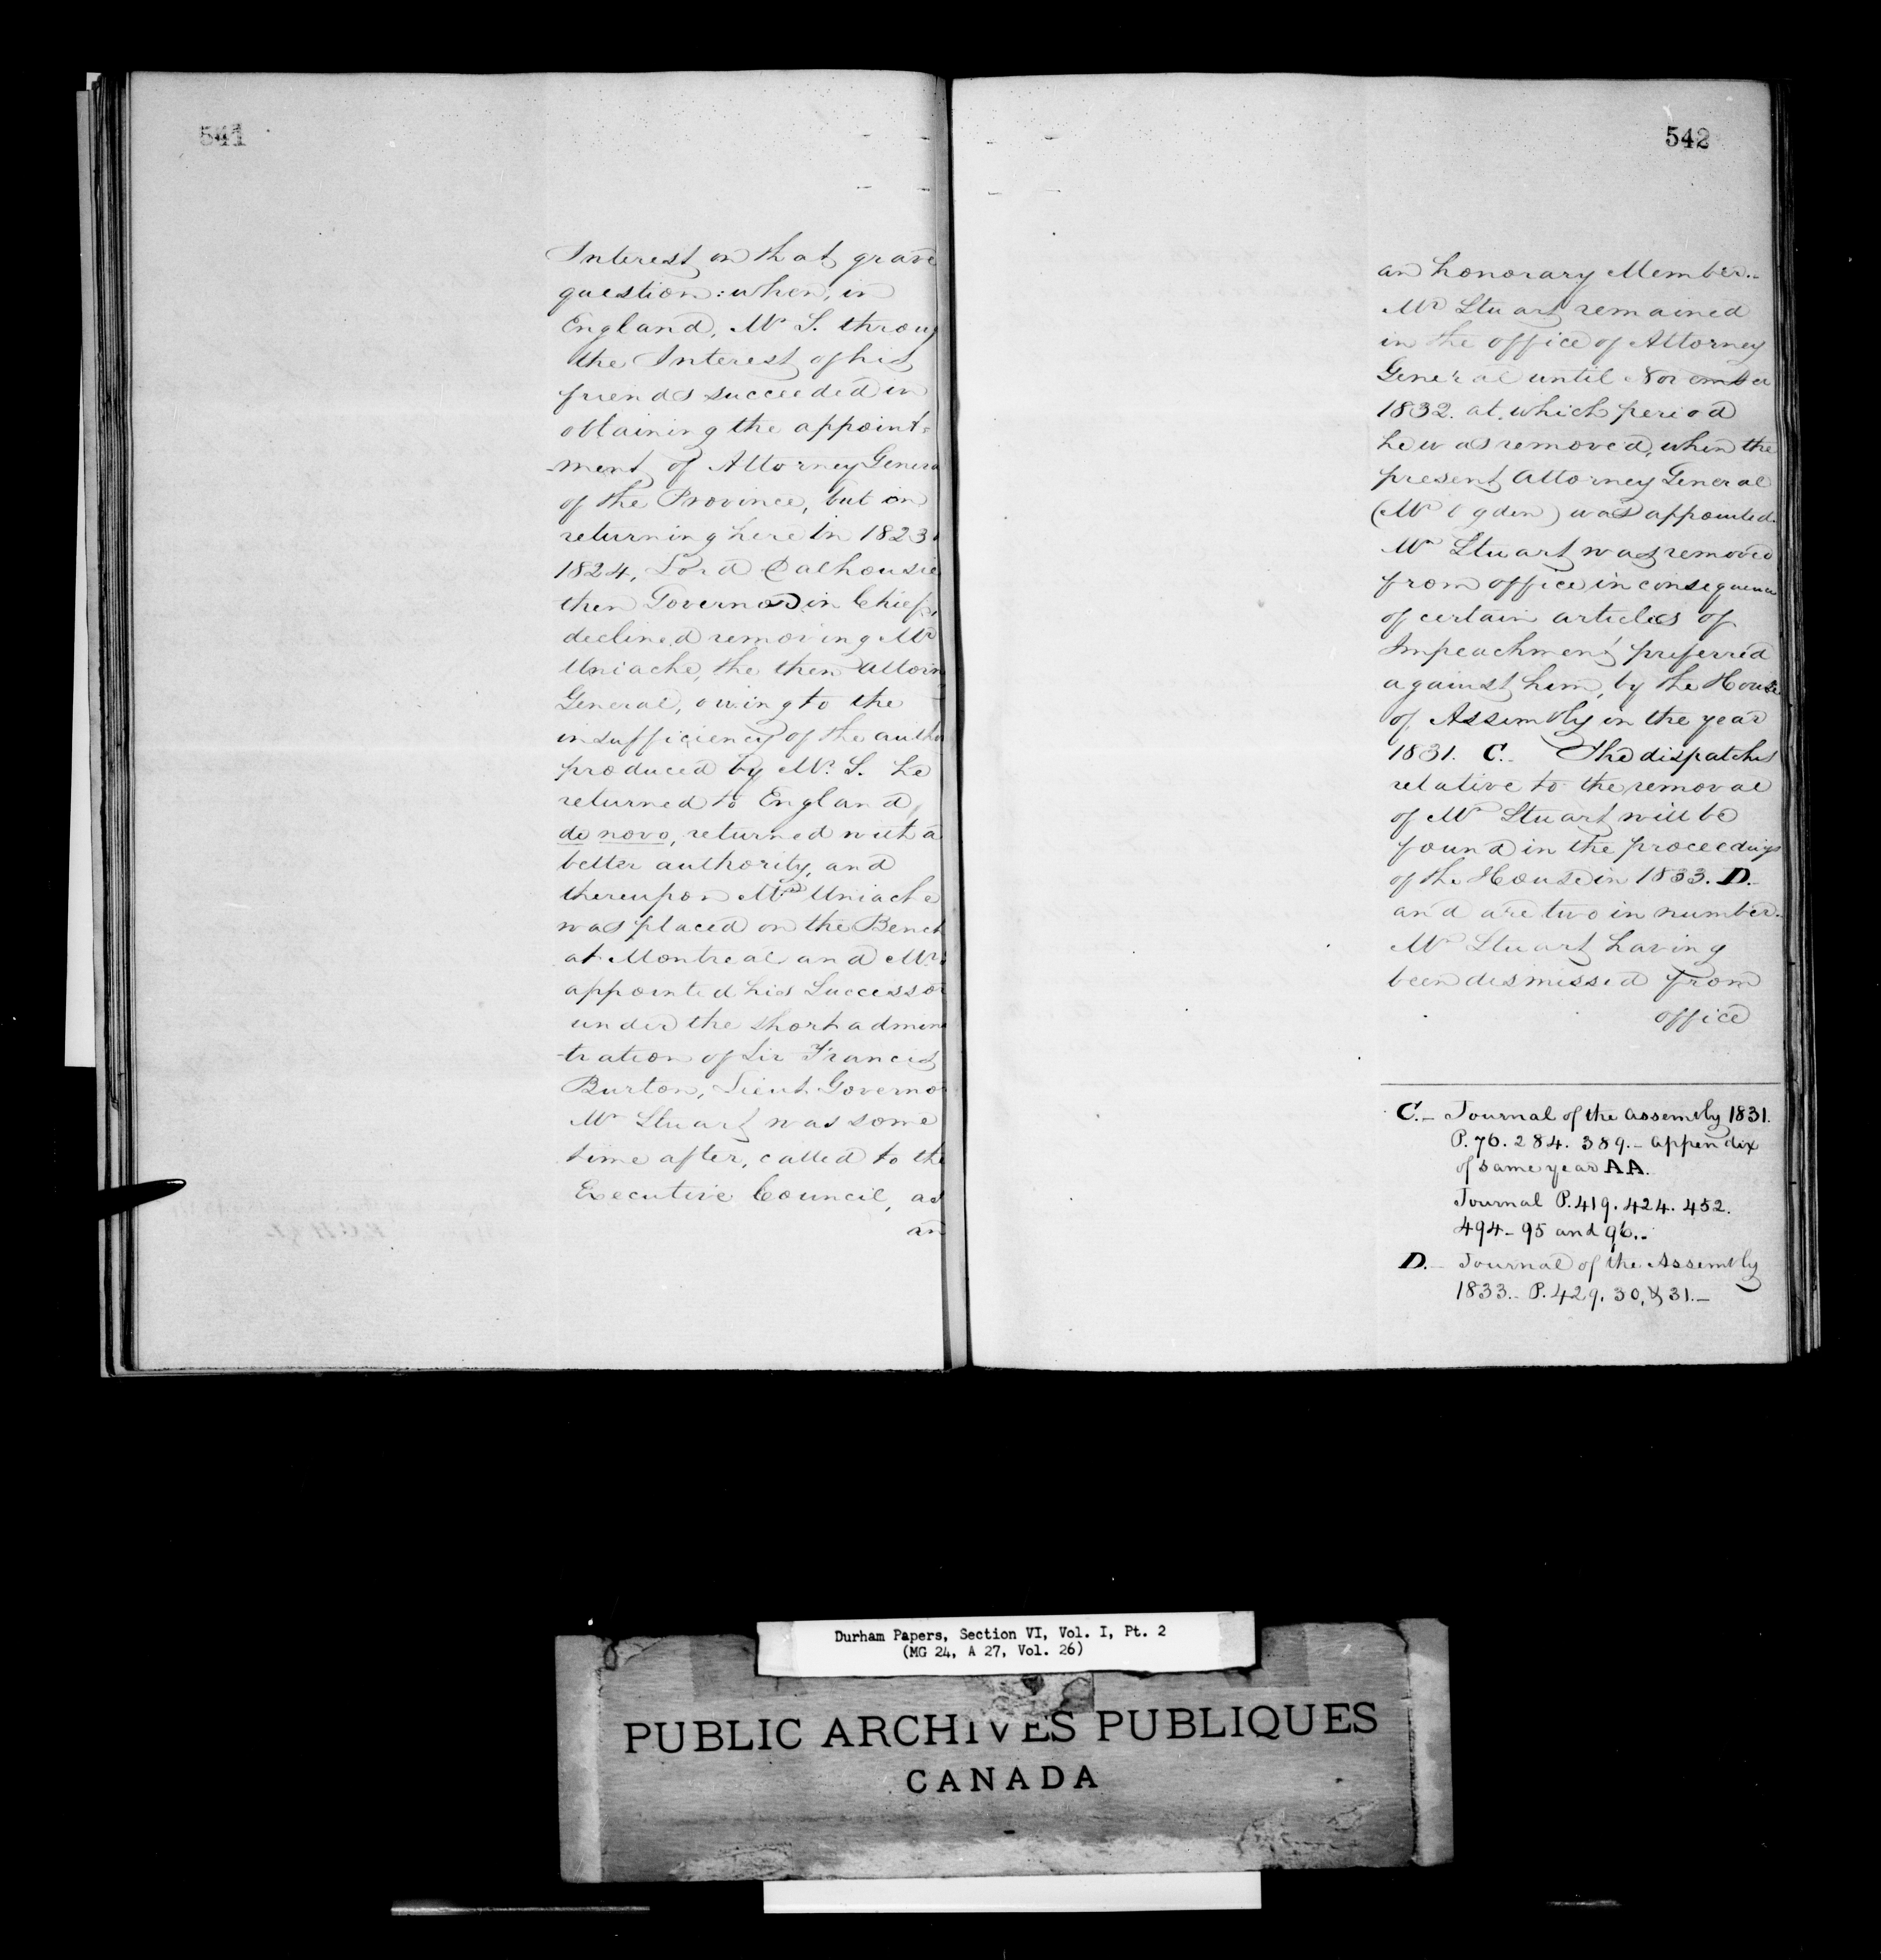 541
Interest on that grave
question: when, in
England, Mr S. throug
the Interest of his
friends succeeded in
obtaining the appoint=
-ment of Attorney Genera
of the Province, but on
returning here in 1823
1824, Lord Dalhousie
then Governor in Chief,
declined removing Mr
Uniache, the then Attorn
General, owing to the
insufficiency of the autho
produced by Mr. S. he
returned to England,
de novo, returned with a
better authority, and
thereupon Mr Uniache
was placed on the Bench
at Montreal and Mr
appointed his Successor
under the short admini
-tration of Sir Francis
Burton, Lieut. Governor
Mr Stuart was some
time after, called to the
Executive Council, as
an
542
an honorary Member.-
Mr Stuart remained
in the office of Attorney
General until November
1832. at which period
he was removed, when the
present Attorney General
(Mr Ogden) was appointed.
Mr Stuart was removed
from office in consequence
of certain articles of
Impeachment preferred
against him, by the House
of Assembly in the year
1831. C.- The dispatches
relative to the removal
of Mr Stuart will be
found in the proceedings
of the House in 1833. D.-
and are two in number.
Mr Stuart having
been dismissed from
office
C.- Journal of the Assembly 1831.
P. 76. 284. 389.- Appendix
of same year AA.
Journal P. 419. 424. 452.
494- 95 and 96.-
D.- Journal of the Assembly
1833.- P. 429. 30, & 31.-
Durham Papers, Section VI, Vol. I, Pt. 2
(MG 24, A 27, Vol. 26)
PUBLIC ARCHIVES PUBLIQUES
CANADA